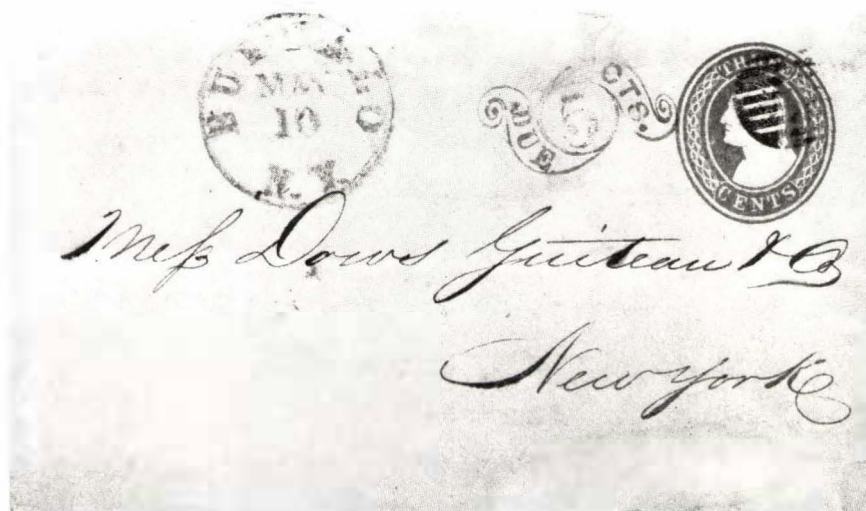 BUFFALO
MAY
10
N.Y.
DUE CTS.
THREE
CENTS
Mess Dows Guiteau & Co
New York